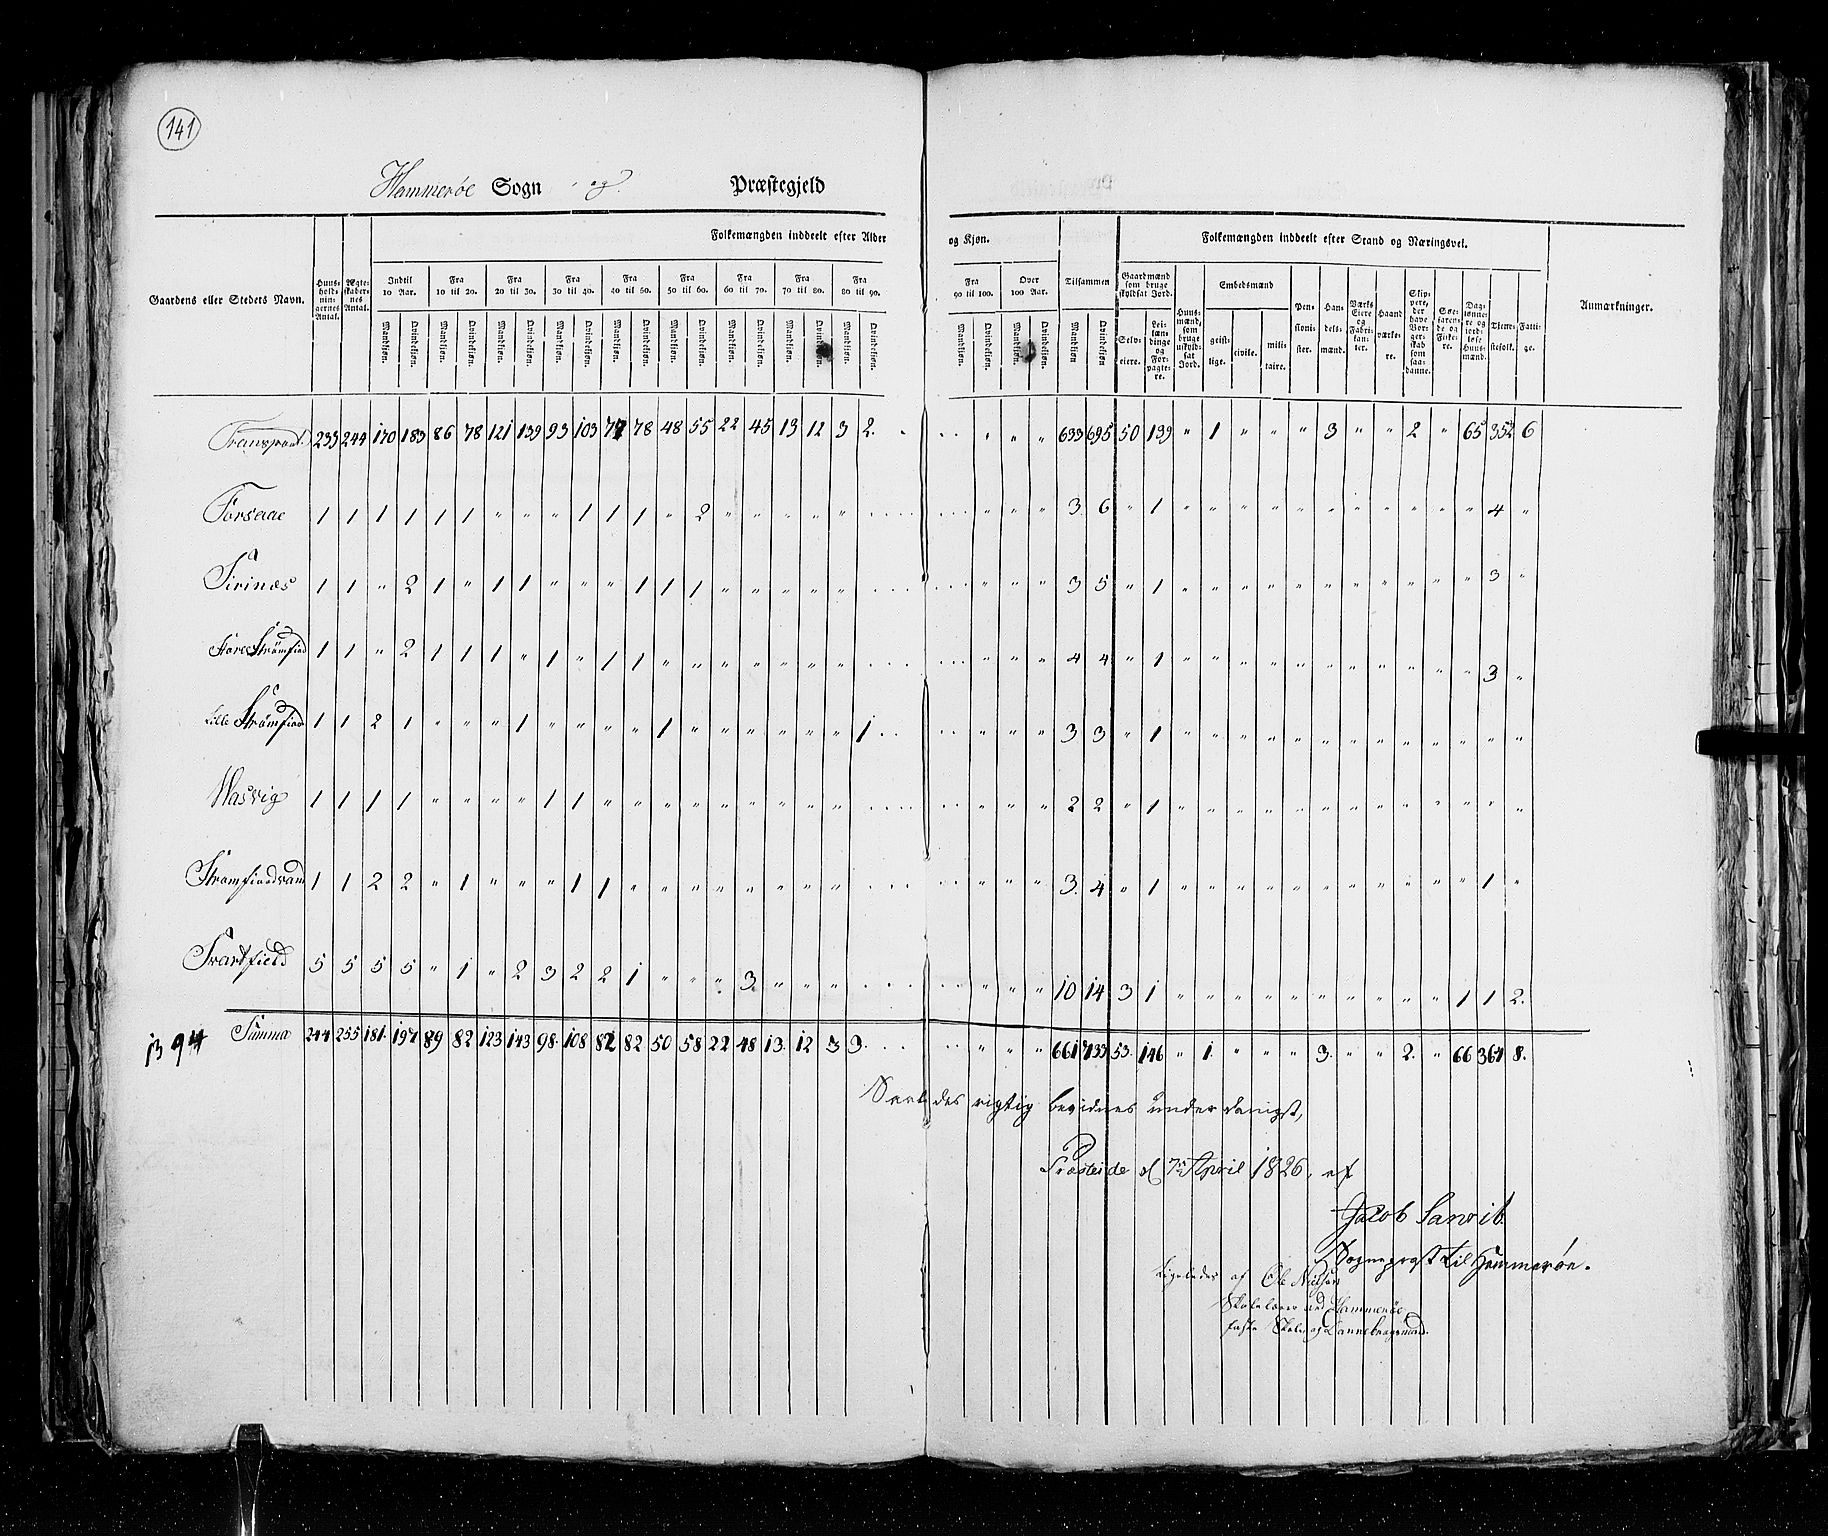 141
Hammerøe Sogn og Præstegjeld
Folkemængden inddeelt efter Alder og Kjøn. Folkemængden inddeelt efter Stand og Næringsvei.
Gaardens eller Steders Navn. Huusholdningernes Antal. Ægteskabernes Antal. Indtil 10 Aar. Fra 10 til 20. Fra 20 til 30. Fra 30 til 40. Fra 40 til 50. Fra 50 til 60. Fra 60 til 70. Fra 70 til 80. Fra 80 til 90. Fra 90 til 100. Over 100 Aar. Tilsammen Gaardmænd som bruge skyldsat Jord. Huusmænd, som bruge uskyldsat Jord. Embedsmænd Pensionister. Handelsmænd. Værks Eiere og Fabrikanter. Haandværkere. Skippere, der have Borgerskab som saadanne. Søefarende og Fiskere. Daglønnere og jordløse Huusmænd. Tjenestefolk. Fattige. Anmærkninger.
Mandkjøn. Qvindekjøn. Mandkjøn. Qvindekjøn. Mandkjøn. Qvindekjøn. Mandkjøn. Qvindekjøn. Mandkjøn. Qvindekjøn. Mandkjøn. Qvindekjøn. Mandkjøn. Qvindekjøn. Mandkjøn. Qvindekjøn. Mandkjøn. Qvindekjøn. Mandkjøn. Qvindekjøn. Mandkjøn. Qvindekjøn. Mandkjøn Qvindekjøn Selveiere. Leilændinge og Forpagtere. geistlige. civile. militaire.
Transport. 233 244 170 183 86 78 121 139 93 103 77 78 48 55 22 45 13 12 3 2. " " " 633 695 50 139 " 1 " " " 3 " " 2 " 65 352 6
Forsaae 1 1 1 1 1 1 " " " 1 1 1 " 2 " " " " " " " " 3 6 " 1 " " " " " " " " " " " 4 "
1 1 " 2 1 " 1 1 " " " 1 1 1 " " " " " " " " 3 5 " 1 " " " " " " " " " " " 3 "
Store Strømfiord 1 1 " 2 1 1 1 " 1 " 1 1 " " " " " " " " " " 4 4 " 1 " " " " " " " " " " " 3 "
Lille Strømfiord 1 1 2 1 " " " 1 " " " " 1 " " " " " " 1 " " " 3 3 " 1 " " " " " " " " " " " " "
Wasvig 1 1 1 1 " " " " 1 1 " " " " " " " " " " " " 2 2 " 1 " " " " " " " " " " " " "
1 1 2 2 " 1 " " " 1 1 " " " " " " " " " " " 3. 4 " 1 " " " " " " " " " " " 1 "
Svartfield 5 5 5 5 " 1 " 2 3 2 2 1 " " " 3 " " " " " " 10 14 3 1 " " " " " " " " " " 1 1 2.
1394 Summa 244 255 181. 197 89 82 123 143 98. 108 82 82 50 58 22 48 13. 12 3 3. " " " 661 733 53. 146 " 1. " " " 3. " " 2. " 66 364 8.
Saaledes rigtig bevidnes underdanigst,
d 7de April 1826, af
Jacob
Sogneprest til Hammerøe.
Ligeledes af Ole Nielsen
Skolelærer ved Hammerøe
faste Skole, og Dannebrogsmand.